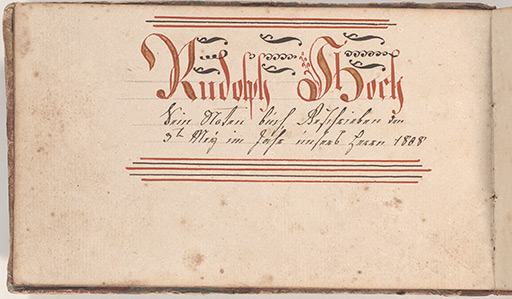 Rudolph Hoch
Sein Noten buch Geschrieben den
3t May im Jahr unsers Herrn 1808